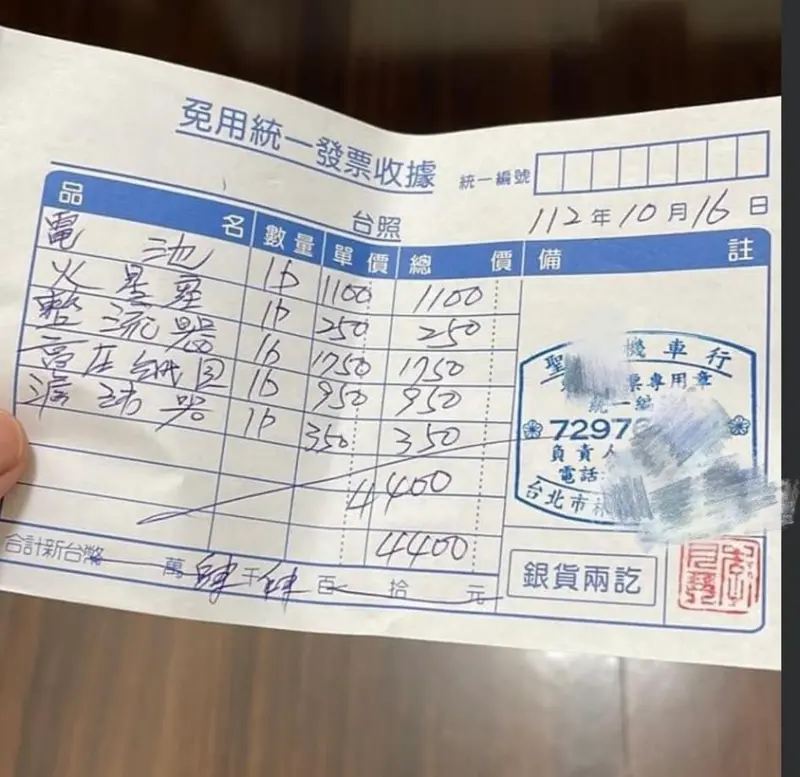 免用統一發票收據
統一編號
台照
112年10月16日
品名 數量 單價 總價 備註
電池 1b 1100 1100
火星塞 1b 250 250
整流器 1b 1750 1750
高压線圈 1b 950 950
濾清器 1b 350 350
4400
4400
合計新台幣 萬肆千肆百 拾 元
聖 機車行
票專用章
統一編
7297
負責人
電話
台北市
銀貨兩訖